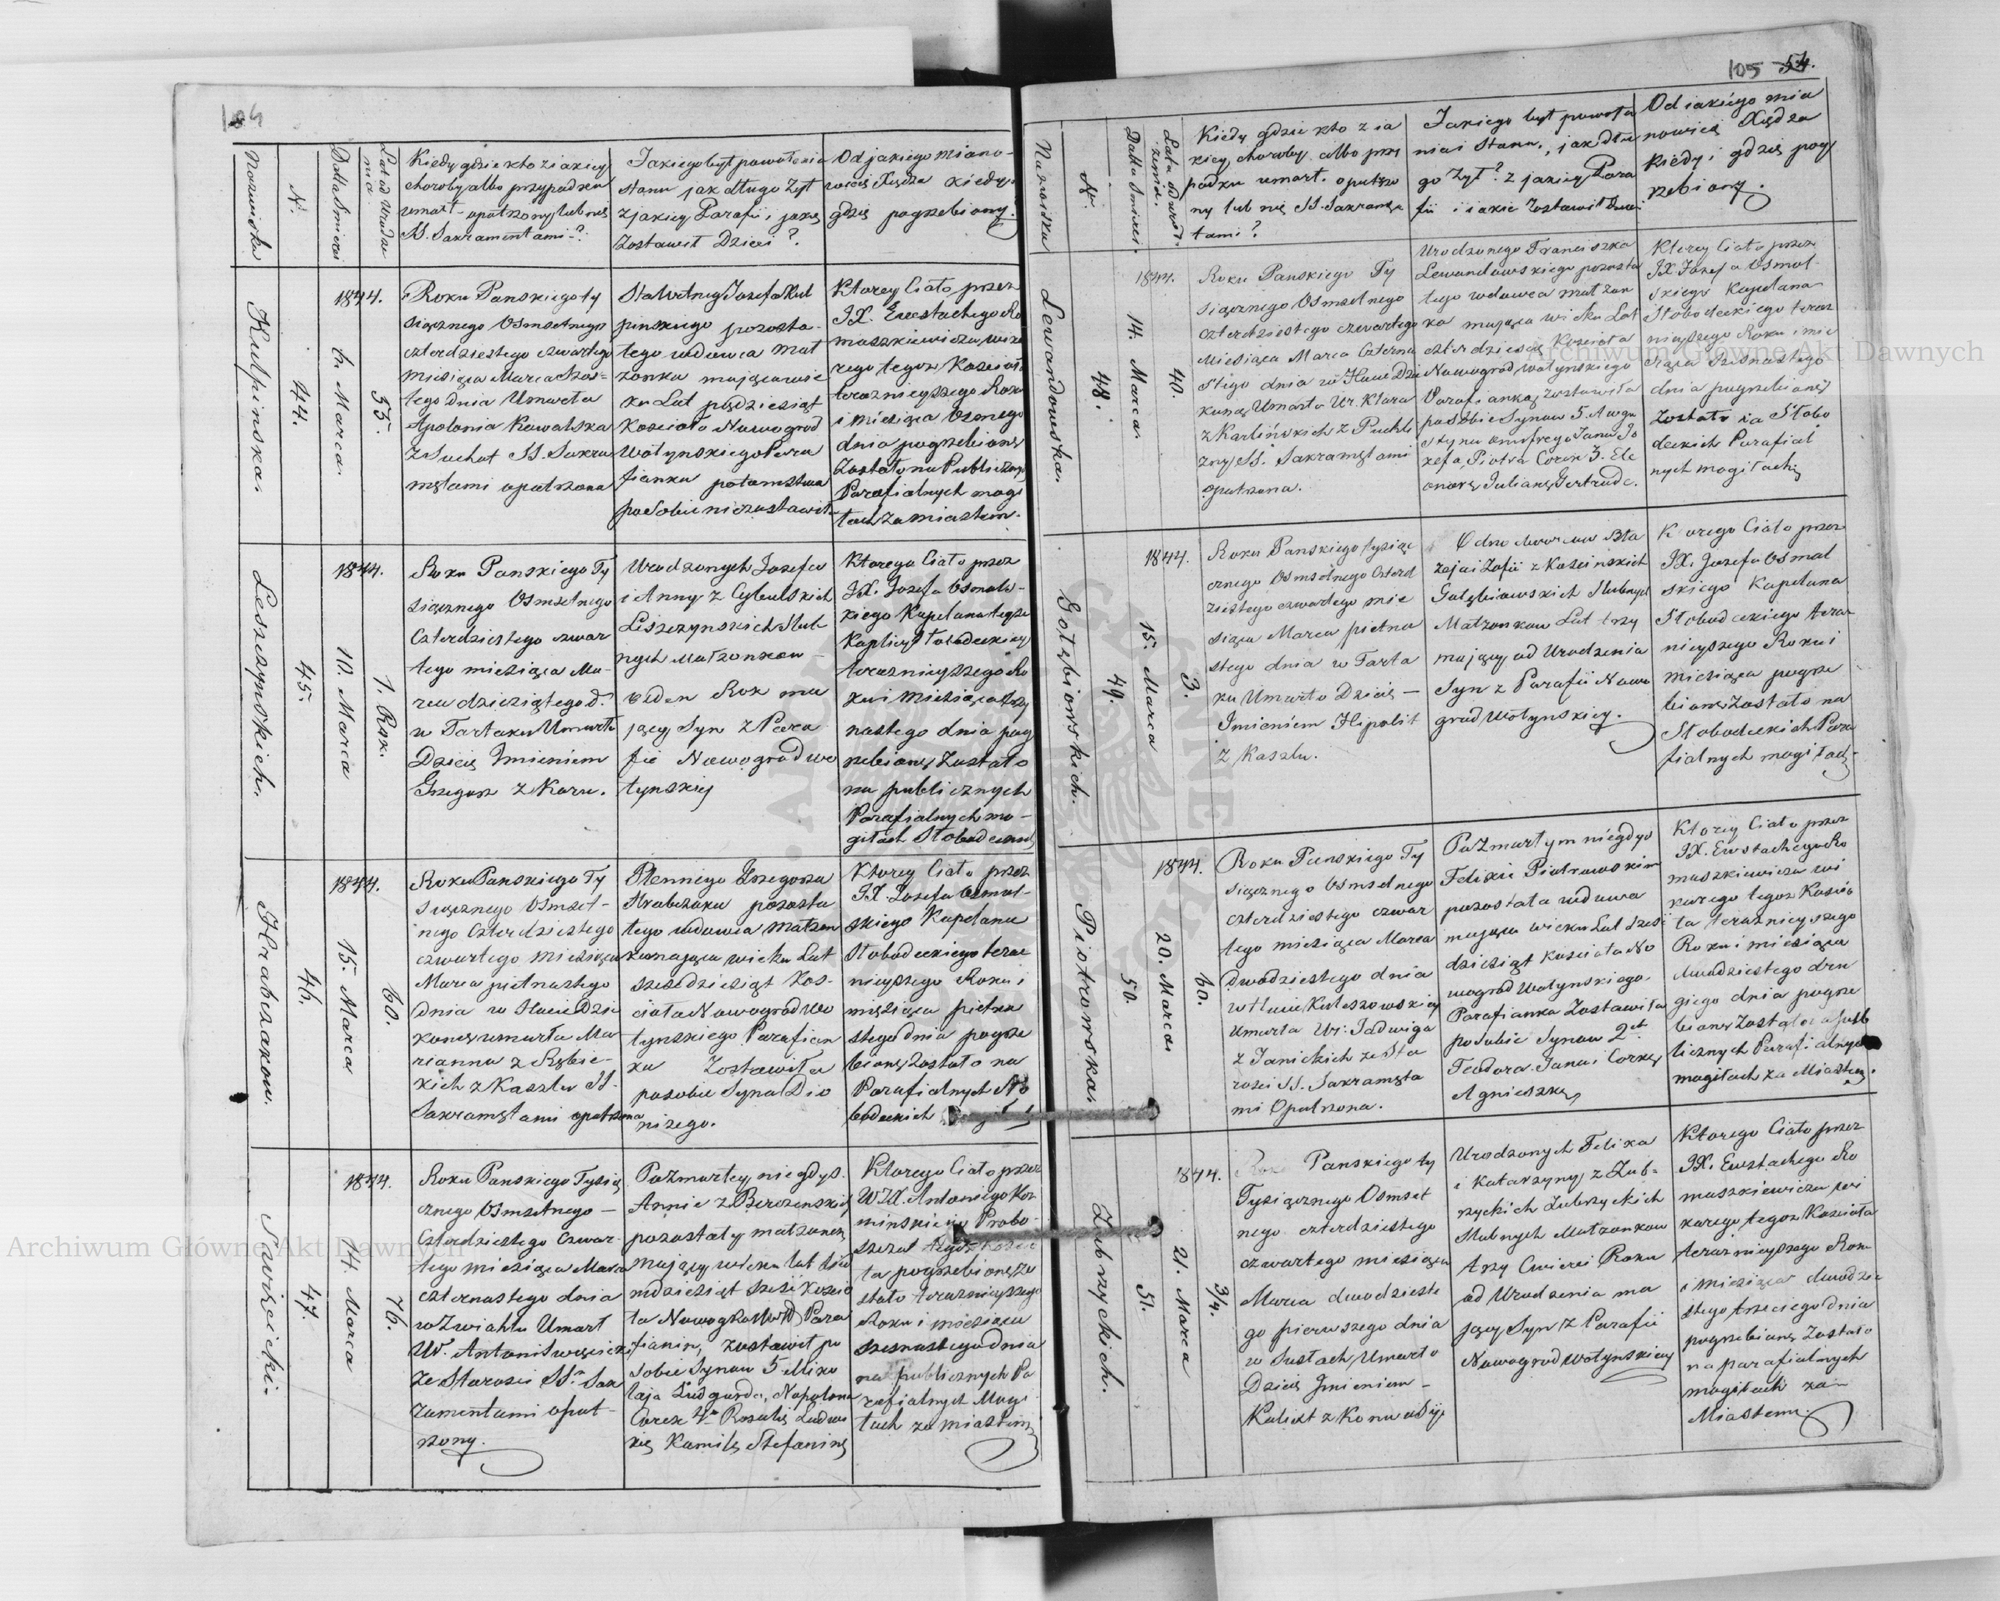 104
Nazwiska
N.
Datta Smierci
Lat od Urodze
nia
Kiedy gdzie kto z iakiey
choroby albo przypadku
umarł opatrzony lub nie
SS. Sakramentami?
Jakiego był powołania
stanu jak długo żył
z jakiey Parafii i jakie
zostawił Dzieci?
Od jakiego miano-
wicie Xiędza kiedy
gdzie pogrzebiony.
Kulpinska.
44.
1844.
6. Marca.
55.
Roku Panskiego ty
siącznego Osmsetnego
czterdziestego czwartego
Miesiąca Marca Szos-
tego dnia Umarła
Apolonia Kowalska
z Suchot SS. Sakra
mętami opatrzona
Szlachetnego Josefa Kul
pinskiego pozosta-
tego wdowca mał
zonka mająca wie
ku Lat pięćdziesiąt
Kościoła Nowogrod
Wołynskiego Para
fianka potomstwa
po sobie nie zostawiła
Ktorey Ciało przez
JX. Eustachego Ro
maszkiewicza wika
rego tegoż Kościoła
teraznieyszego Roku
i miesiąca Osmego
dnia pogrzebione
Zostało na Publicznych
Parafialnych mogi
łach za miastem.
Leszczynskich.
45.
1844.
10. Marca
1. Rok.
Roku Panskiego Ty
siącznego Osmsetnego
Czterdziestego czwar
tego miesiąca Ma-
rca dziesiątego d.
w Tartaku Umarło
Dziecię Imieniem
Grzegorz z Koru.
Urodzonych Josefa
i Anny z Cybulskich
Leszczynskich Slub
nych Małzonkow
ieden Rok ma
jący Syn z Para
fii Nowogrodwo
łynskiej
Ktorego Ciało przez
JX. Josefa Osmols-
kiego Kapelana tegoż
Kaplicy Słobodeckiej
teraznieyszego Ro
ku i Miesiąca trzy
nastego dnia pog
rzebione Zostało
na publicznych
Parafialnych mo-
giłach Słobodeckich
Hrabczakow.
46.
1844.
15. Marca
60.
Roku Panskiego Ty
siącznego Osmset-
nego Czterdziestego
czwartego Miesiąca
Marca pietnastego
dnia w Hucie Dzie
kaney umarła Ma
rianna z Rębie-
kich z Kaszlu SS.
Sakramętami opatrzona
Plennego Grzegorza
Hrabczaka pozosta
tego wdowca Małzon
ka mająca wieku Lat
szescdziesiąt Kos-
cioła Nowogrodwo
łynskiego Parafian
ka Zostawiła
po sobie Syna Dio
nizego.
Ktorey Ciało przez
JX Josefa Osmol-
skiego Kapelana
Słobodeckiego teraz
nieyszego Roku i
miesiąca pietna
stego dnia pogrze
bione Zostało na
Parafialnych Sło
bodeckich
Swiecicki.
47.
1844.
14. Marca
76.
Roku Panskiego Tysią
cznego Osmsetnego —
Czterdziestego Czwar-
tego miesiąca Marca
czternastego dnia
w Zwiahlu Umarł
W. Antoni Swięcicki
ze Starosci SS. Sak
ramentami opat-
rzony.
Po Zmarłey niegdys
Annie z Berozenskich
pozostały małzonek
mający wieku lat sie
mdziesiąt szesć Koscio
ła Nowogrodwoł Para
fianin, zostawił po
sobie Synow 5 Miko
łaja Ludgarda, Napolona
Corek 4. Rozalię Ludwi
kię Kamilę Stefaninę
Ktorego Ciało przez
WJX. Antoniego Kor
minskiego Probo-
szcza tegoż Koscio
ła pogrzebione zo
stało teraznieyszego
Roku i miesiąca
szesnastego dnia
na publicznych Pa
rafialnych Mogi
łach za miastem
105 54.
Nazwiska
N.
Datta Smierci.
Lata od Urod-
zenia.
Kiedy gdzie kto z ia
kiey choroby albo przy
padku umarł. opatrzo
ny lub nie SS. Sakramę
tami?
Jakiego był powoła
nia i Stanu, jak dłu
go żył? z jakiey Para
fii i iakie zostawił Dzieci
Od iakiego mia
nowicie Xiędza
kiedy i gdzie pog
rzebiony.
Lewandowska.
48.
1844.
14. Marca
40.
Roku Panskiego Ty
siącznego Osmsetnego
czterdziestego czwartego
Miesiąca Marca Czterna
stego dnia w Hucie Dzie
kaney Umarła Ur. Klara
z Karlińskich z Puchli
zny SS. Sakramętami
opatrzona.
Urodzonego Franciszka
Lewandowskiego pozosta
tego wdowca małzon
ka mająca wieku Lat
czterdziescie Kościoła
Nowogrod Wołynskiego
Parafianka zostawiła
po sobie Synow 5. Augu
styna Onufrego Jana Jo
zefa, Piotra Corek 3. Ele
onorę Julianę Gertrudę.
Ktorey Ciało przez
JX. Jozefa Osmol-
skiego Kapelana
Słobodeckiego teraz
nieyszego Roku i mie
siąca Szesnastego
dnia pogrzebione
Zostało na Słobo
deckich Parafial
nych mogiłach
Gołębiowskich.
49.
1844.
15. Marca
3.
Roku Panskiego tysią
cznego Osmsetnego Czterd
ziestego czwartego mie
siąca Marca pietna
stego dnia w Tarta
ku Umarło Dziecię —
Imieniem Hipolit
z Kaszlu.
Odno dworcow Bła
zeja i Zofii z Koscinskich
Gołębiowskich Slubnych
Małzonkow Lat trzy
mający od Urodzenia
Syn z Parafii Nowo
grod Wołynskiey.
Ktorego Ciało przez
JX. Jozefa Osmol
skiego Kapelana
Słobodeckiego teraz
nieyszego Roku i
miesiąca pogrze
bione Zostało na
Słobodeckich Para
fialnych mogiłach
Piotrowska.
50.
1844.
20. Marca
60.
Roku Panskiego Ty
siącznego Osmsetnego
czterdziestego czwar
tego miesiąca Marca
Dwodziestego dnia
w Hucie Kuleszowskiey
Umarła Ur: Jadwiga
z Janickich ze Sta
rosci SS. Sakramęta
mi Opatrzona.
Po Zmarłym niegdys
Felixie Piotrowskim
pozostała wdowa
mająca wieku Lat szesć
dziesiąt Kościoła No
wogrod Wołynskiego
Parafianka Zostawiła
po sobie Synow 2ch
Teodora Jana i Corkę
Agnieszkę
Ktorey Ciało przez
JX. Eustachego Ro
maszkiewicza wi
karego tegoż Koscio
ła teraznieyszego
Roku i miesiąca
dwudziestego dru
giego dnia pogrze
bione Zostało na pub
licznych Parafialnych
mogiłach za Miastem.
Zubrzyckich.
51.
1844.
21. Marca
3/4.
Roku Panskiego ty
Tysiącznego Osmset
nego czterdziestego
czwartego miesiąca
Marca dwodzieste
go pierwszego dnia
w Susłach, Umarło
Dziecię Imieniem —
Kalixt z Konwulsji
Urodzonych Felixa
i Katarzyny z Zub-
rzyckich Zubrzyckich
Slubnych Małzonkow
trzy Cwierci Roku
od Urodzenia ma
jący Syn z Parafii
Nowogrod Wołynskiey
Ktorego Ciało przez
JX. Eustachego Ro
maszkiewicza Wi
karego tegoż Kościoła
teraznieyszego Roku
i Miesiąca dwodzie
stego trzeciego dnia
pogrzebione Zostało
na parafialnych
mogiłach za —
Miastem.
Archiwum Główne Akt Dawnych
Archiwum Główne Akt Dawnych